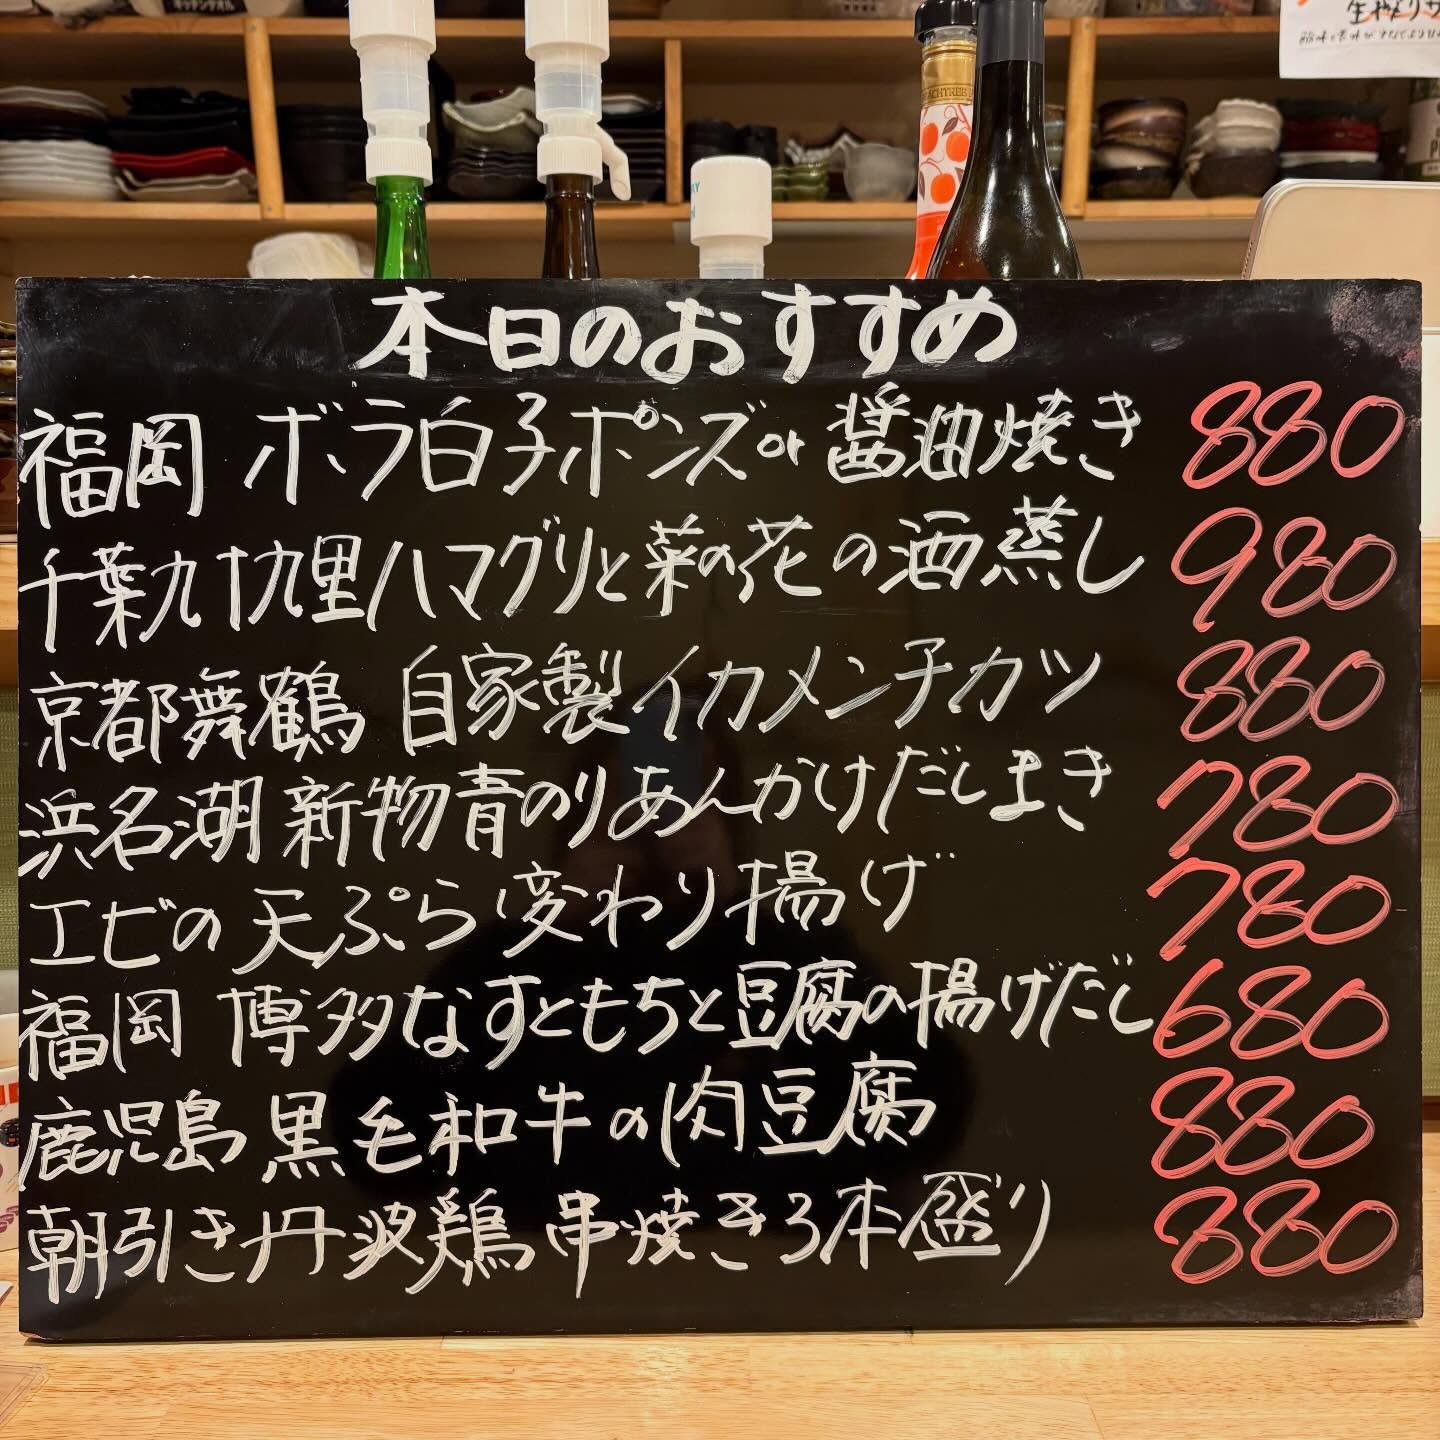 キッチンタオル
ACHTREE
本日のおすすめ
福岡 ボラ白子ポンズor醤油焼き 880
千葉九十九里ハマグリと菜の花の酒蒸し 980
京都舞鶴 自家製イカメンチカツ 880
浜名湖 新物青のりあんかけだしまき 780
エビの天ぷら変わり揚げ 780
福岡 博多なすともちと豆腐の揚げだし 680
鹿児島 黒毛和牛の肉豆腐 880
朝引き丹波鶏 串焼き3本盛り 880